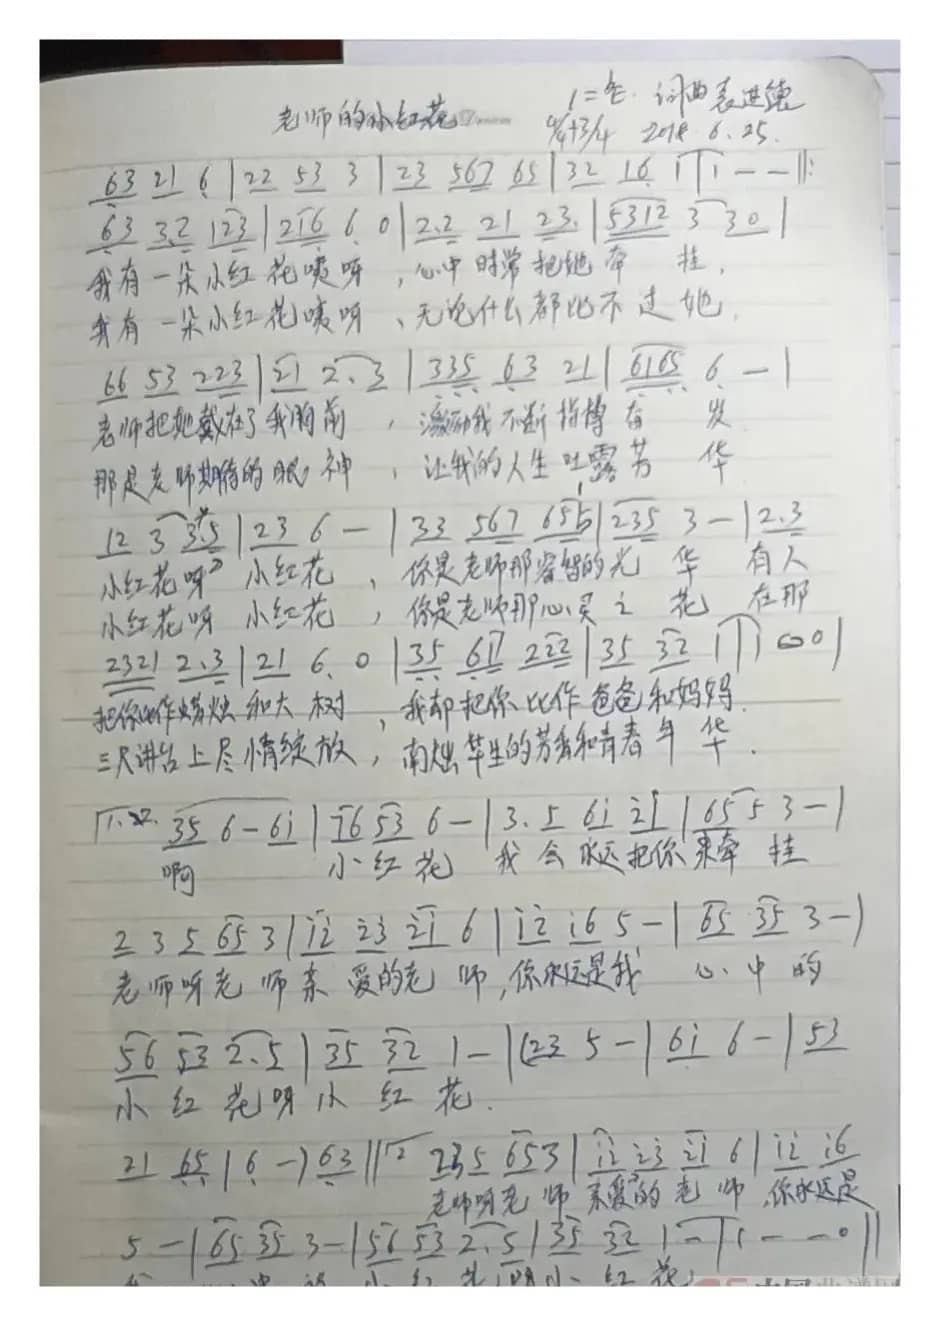 老师的小红花 1=E 词曲袁进德
4/4+3/4 2018.6.25.
63 21 6 | 22 53 3 | 23 567 65 | 32 16 1 | 1 - - ‖:
63 3.2 123 | 216 6 0 | 2.2 21 23. | 5312 3 30 |
我有一朵小红花咦呀,心中时常把她牵挂,
我有一朵小红花咦呀、无论什么都比不过她.
66 53 223 | 21 2.3 | 335 63 21 | 6165 6 - |
老师把她戴在了我胸前,激励我不断拼搏奋发
那是老师期待的眼神,让我的人生吐露芳华
12 3 3.5 | 23 6 - | 33 567 655 | 235 3 - | 2.3
小红花呀 小红花,你是老师那睿智的光华 有人
小红花呀 小红花,你是老师那心灵之花 在那
2321 2.3 | 21 6. 0 | 35 61 222 | 35 32 1 | 1 00 |
把你比作蜡烛和大树,我却把你比作爸爸和妈妈.
三尺讲台上尽情绽放,毕生的芳香和青春年华.
1. 35 6 - 6i | i6 53 6 - | 3. 5 6i 2i | 65 5 3 - |
啊 小红花 我会永远把你来牵挂
2 3 5 65 3 | i2 i3 2i 6 | i2 i6 5 - | 65 35 3 - |
老师呀老师亲爱的老师,你永远是我心中的
56 53 2.5 | 35 32 1 - | (23 5 - | 6i 6 - | 53
小红花呀小红花.
21 65 | 6 -) 63 ‖ 2 235 653 | i2 i3 2i 6 | i2 i6
老师呀老师亲爱的老师,你永远是
5 - | 65 35 3 - | 56 53 2.5 | 35 32 1 - | 1 - - 0 ‖
小红花呀小红花